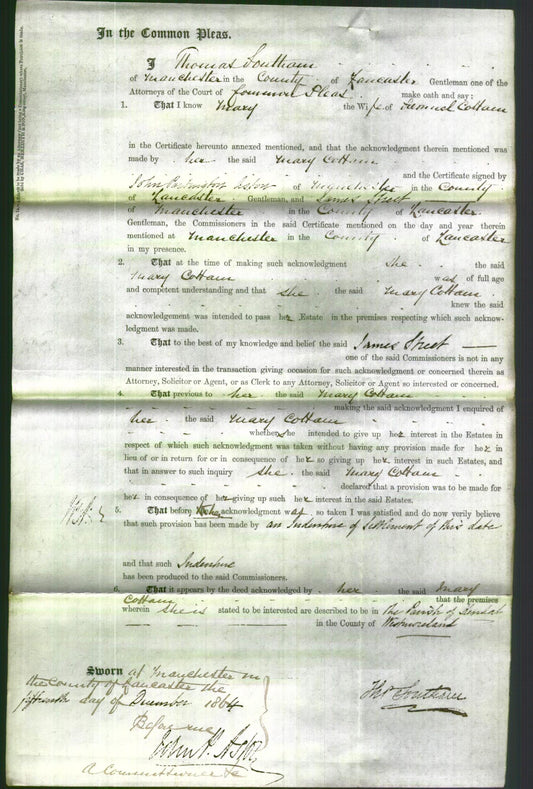 In the Common Pleas.
I Thomas Southam
of Manchester in the County of Lancaster Gentleman one of the
Attorneys of the Court of Common Pleas make oath and say:
1. That I know Mary the Wife of Samuel Cottam
in the Certificate hereunto annexed mentioned, and that the acknowledgment therein mentioned was
made by her the said Mary Cottam
and the Certificate signed by
John Aston of Manchester in the County
of Lancaster Gentleman, and James Street
of Manchester in the County of Lancaster
Gentleman, the Commissioners in the said Certificate mentioned on the day and year therein
mentioned at Manchester in the County of Lancaster
in my presence.
2. That at the time of making such acknowledgment She the said
Mary Cottam was of full age
and competent understanding and that she the said Mary Cottam
knew the said
acknowledgement was intended to pass her Estate in the premises respecting which such acknow-
ledgment was made.
3. That to the best of my knowledge and belief the said James Street
one of the said Commissioners is not in any
manner interested in the transaction giving occasion for such acknowledgment or concerned therein as
Attorney, Solicitor or Agent, or as Clerk to any Attorney, Solicitor or Agent so interested or concerned.
4. That previous to her the said Mary Cottam
making the said acknowledgment I enquired of
her the said Mary Cottam
whether she intended to give up her interest in the Estates in
respect of which such acknowledgment was taken without having any provision made for her in
lieu of or in return for or in consequence of her so giving up her interest in such Estates, and
that in answer to such inquiry she the said Mary Cottam
declared that a provision was to be made for
her in consequence of her giving up such her interest in the said Estates.
5. That before acknowledgment was so taken I was satisfied and do now verily believe
that such provision has been made by an Indenture of Settlement of this date
and that such Indenture
has been produced to the said Commissioners.
6. That it appears by the deed acknowledged by her the said Mary
Cottam that the premises
wherein she is stated to be interested are described to be in the Parish of
in the County of Westmoreland
Sworn at Manchester in
the County of Lancaster the
fifteenth day of December 1864
Before me
John P. Aston
A Commissioner &c
Thos Southam